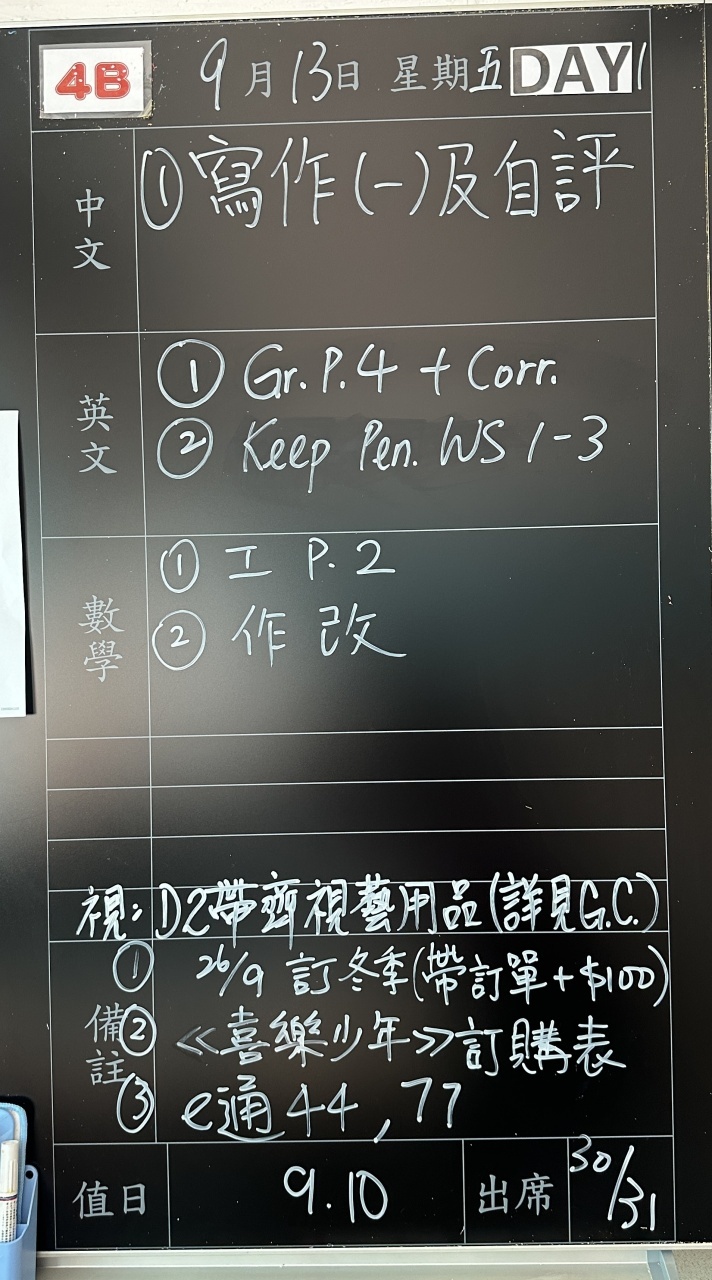 4B 9月13日 星期五 DAY 1
中文 ①寫作(一)及自評
英文 ① Gr. P.4 + Corr.
② Keep Pen. WS 1-3
數學 ① 工 P.2
② 作 改
視: D2帶齊視藝用品(詳見G.C.)
備註 ① 26/9 訂冬季(帶訂單+$100)
② 《喜樂少年》訂購表
③ e通44,77
值日 9.10 出席 30/31